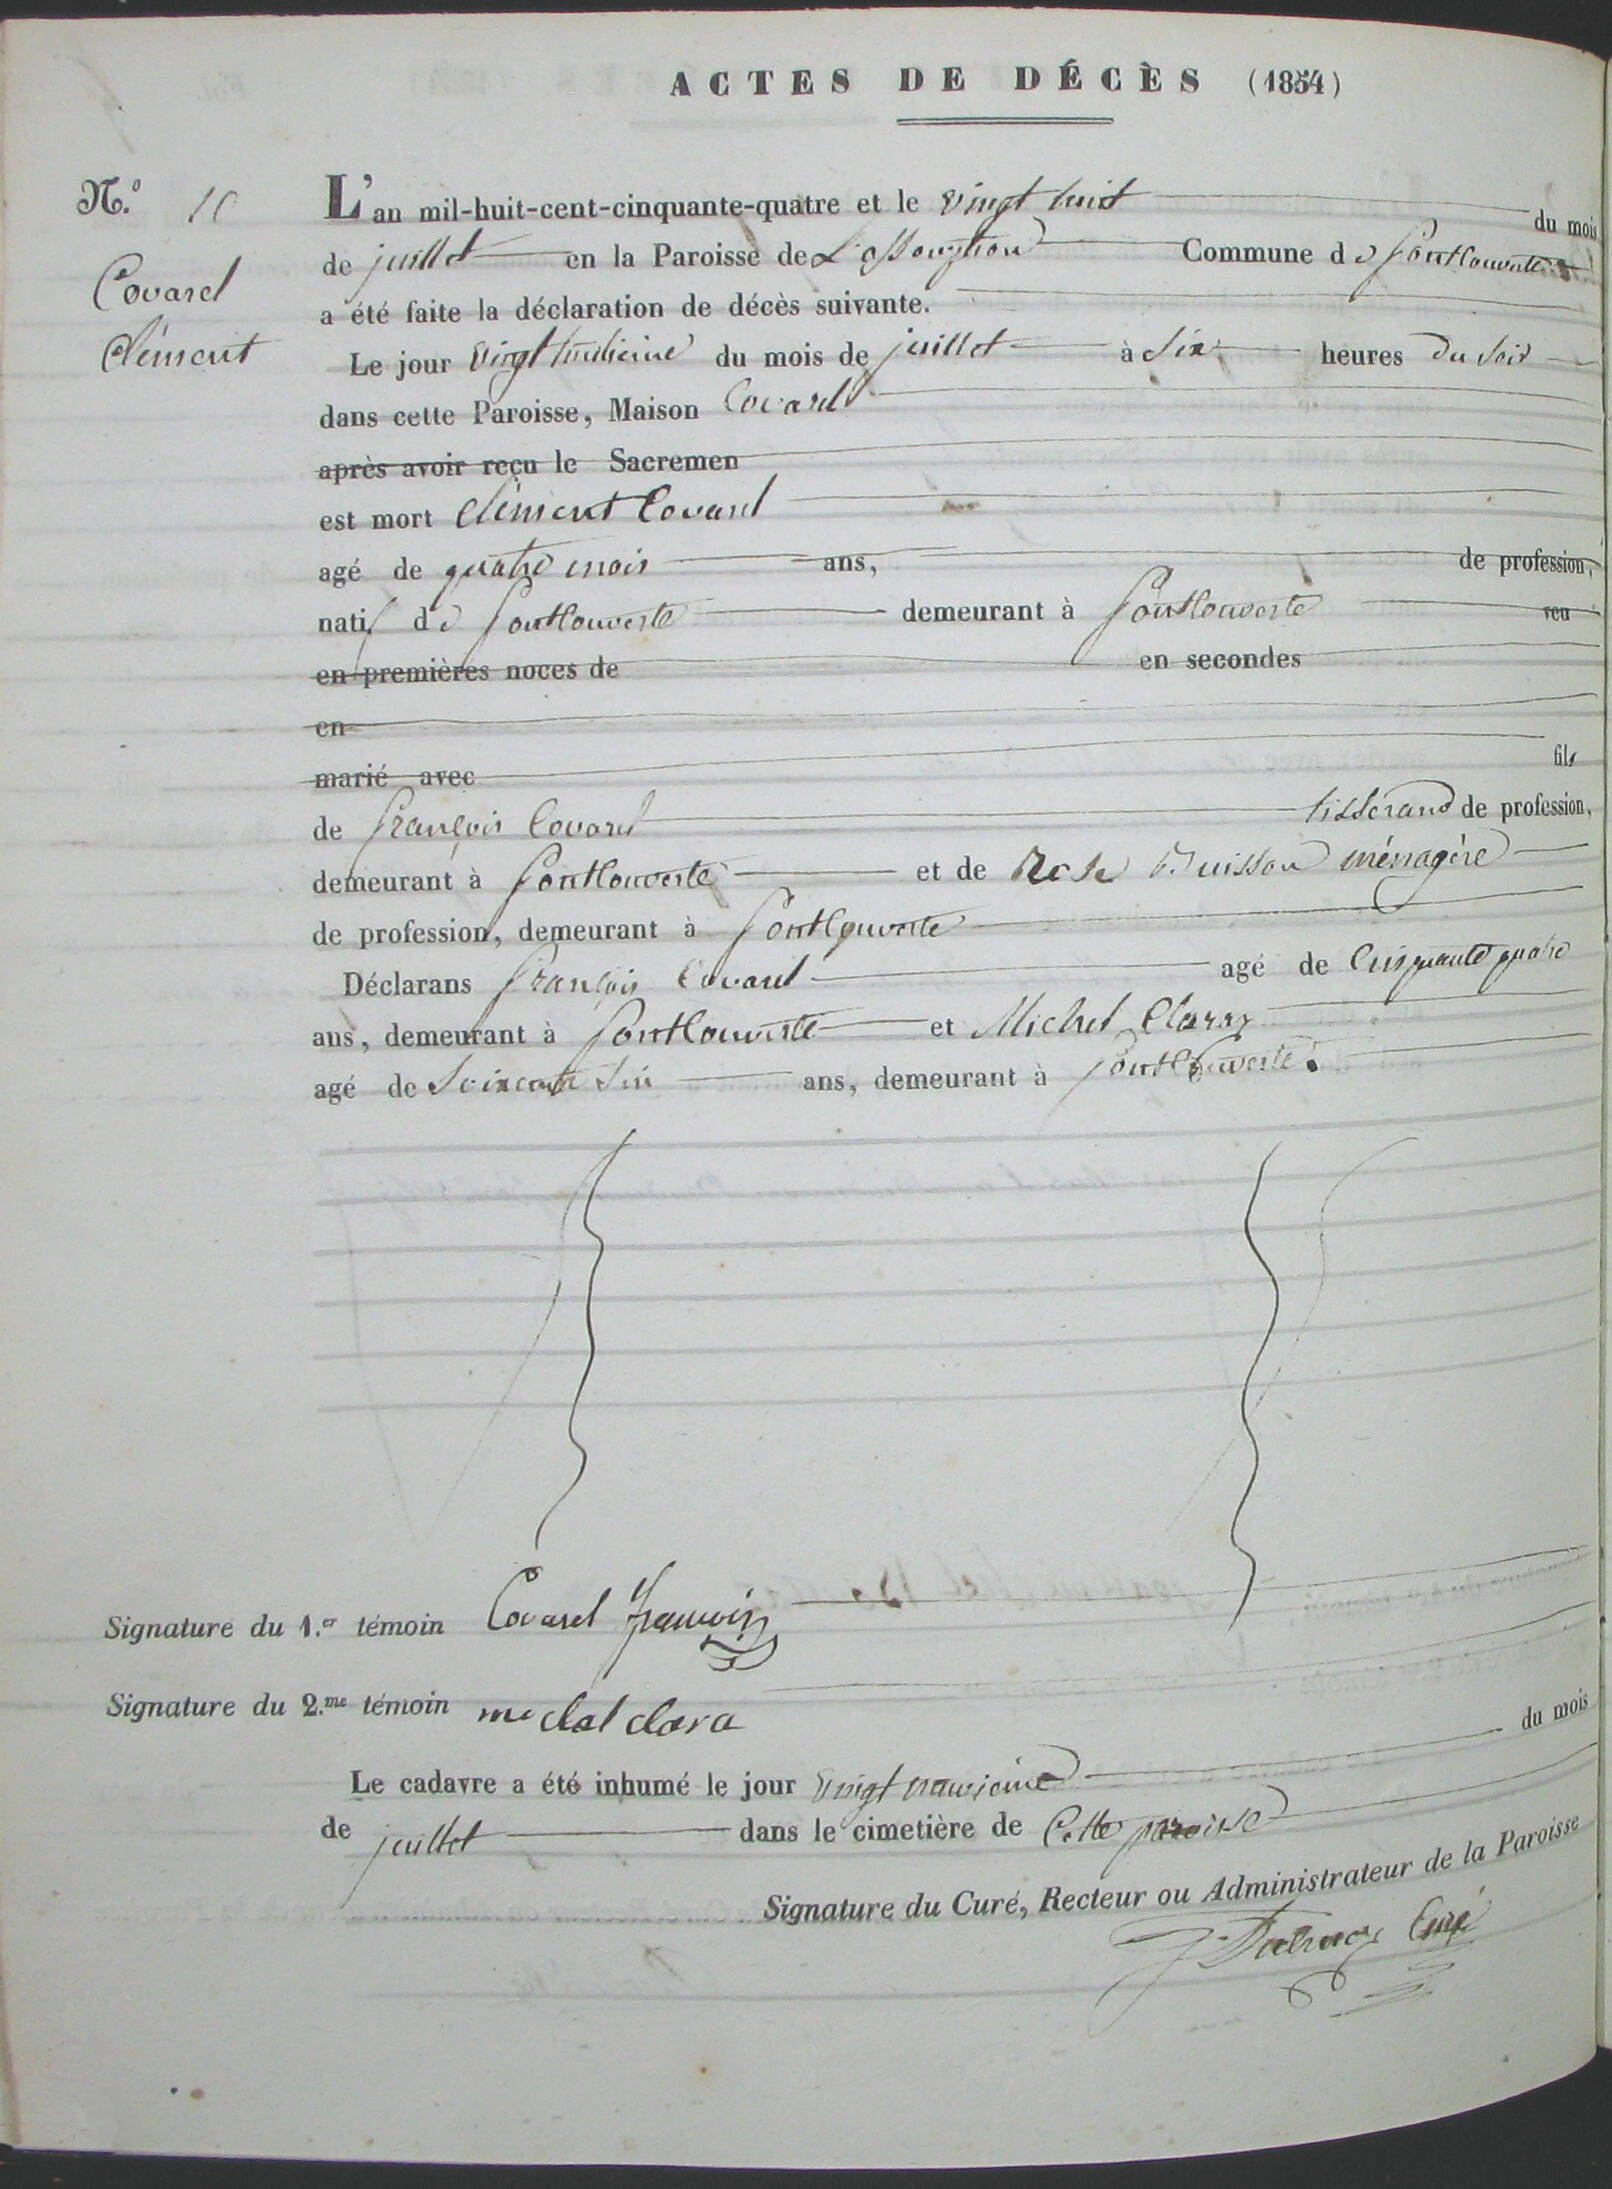 ACTES DE DÉCÈS (1854)
N.º 10
Covarel
Clément
L'an mil-huit-cent-cinquante-quatre et le vingt huit du mois
de juillet en la Paroisse de L'assomption Commune de Fontcouverte
a été faite la déclaration de décès suivante.
Le jour vingt huitième du mois de juillet à six heures du soir
dans cette Paroisse, Maison Covarel
après avoir reçu le Sacremen
est mort Clément Covarel
agé de quatre mois ans, de profession,
natif de Fontcouverte demeurant à Fontcouverte veu
en premières noces de en secondes
en
marié avec fils
de François Covarel tisserand de profession,
demeurant à Fontcouverte et de Rose Buisson ménagère
de profession, demeurant à Fontcouverte
Déclarans François Covarel agé de Cinquante quatre
ans, demeurant à Fontcouverte et Michel Claraz
agé de Soixante six ans, demeurant à Fontcouverte.
Signature du 1.er témoin Covarel François
Signature du 2.me témoin michel clara
Le cadavre a été inhumé le jour vingt neuvième du mois
de juillet dans le cimetière de Cette paroisse
Signature du Curé, Recteur ou Administrateur de la Paroisse
Curé